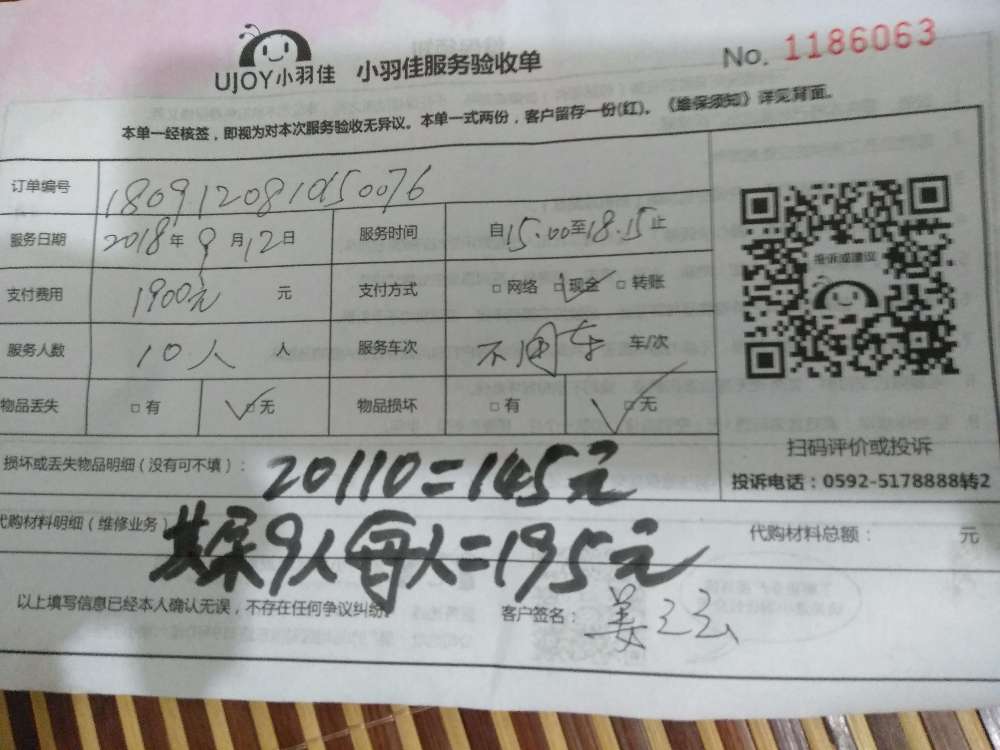 UJOY小羽佳 小羽佳服务验收单 No. 1186063
本单一经核签，即视为对本次服务验收无异议。本单一式两份，客户留存一份(红)。《维保须知》详见背面。
订单编号 180912081050076
服务日期 2018年9月12日 服务时间 自15.00至18.15止
支付费用 1900元 元 支付方式 □网络 □现金 □转账
服务人数 10人 人 服务车次 不用车 车/次
物品丢失 □有 □无 物品损坏 □有 □无
投诉或建议
扫码评价或投诉
投诉电话：0592-5178888转2
损坏或丢失物品明细（没有可不填）： 20110=145元
代购材料明细（维修业务） 其余9人每人=195元
代购材料总额： 元
以上填写信息已经本人确认无误，不存在任何争议纠纷。 客户签名：姜